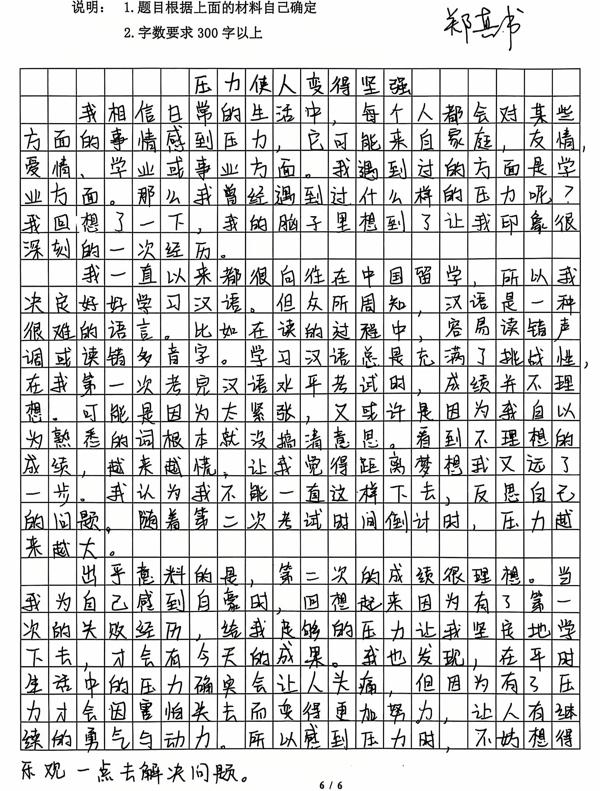 说明： 1.题目根据上面的材料自己确定
2.字数要求 300 字以上
郑真书
压力使人变得坚强
我相信日常的生活中，每个人都会对某些
方面的事情感到压力，它可能来自家庭，友情，
爱情、学业或事业方面。我遇到过的方面是学
业方面。那么我曾经遇到过什么样的压力呢？
我回想了一下，我的脑子里想到了让我印象很
深刻的一次经历。
我一直以来都很向往在中国留学，所以我
决定好好学习汉语。但众所周知，汉语是一种
很难的语言。比如在读的过程中，容易读错声
调或读错多音字。学习汉语总是充满了挑战性，
在我第一次考完汉语水平考试时，成绩并不理
想。可能是因为太紧张，又或许是因为我自以
为熟悉的词根本就没搞清意思。看到不理想的
成绩，越来越慌，让我觉得距离梦想我又远了
一步。我认为我不能一直这样下去，反思自己
的问题。随着第二次考试时间倒计时，压力越
来越大。
出乎意料的是，第二次的成绩很理想。当
我为自己感到自豪时，回想起来因为有了第一
次的失败经历，给我足够的压力让我坚定地学
下去，才会有今天的成果。我也发现，在平时
生活中的压力确实会让人头痛，但因为有了压
力才会因害怕失去而变得更加努力，让人有继
续的勇气与动力。所以感到压力时，不妨想得
乐观一点去解决问题。
6 / 6